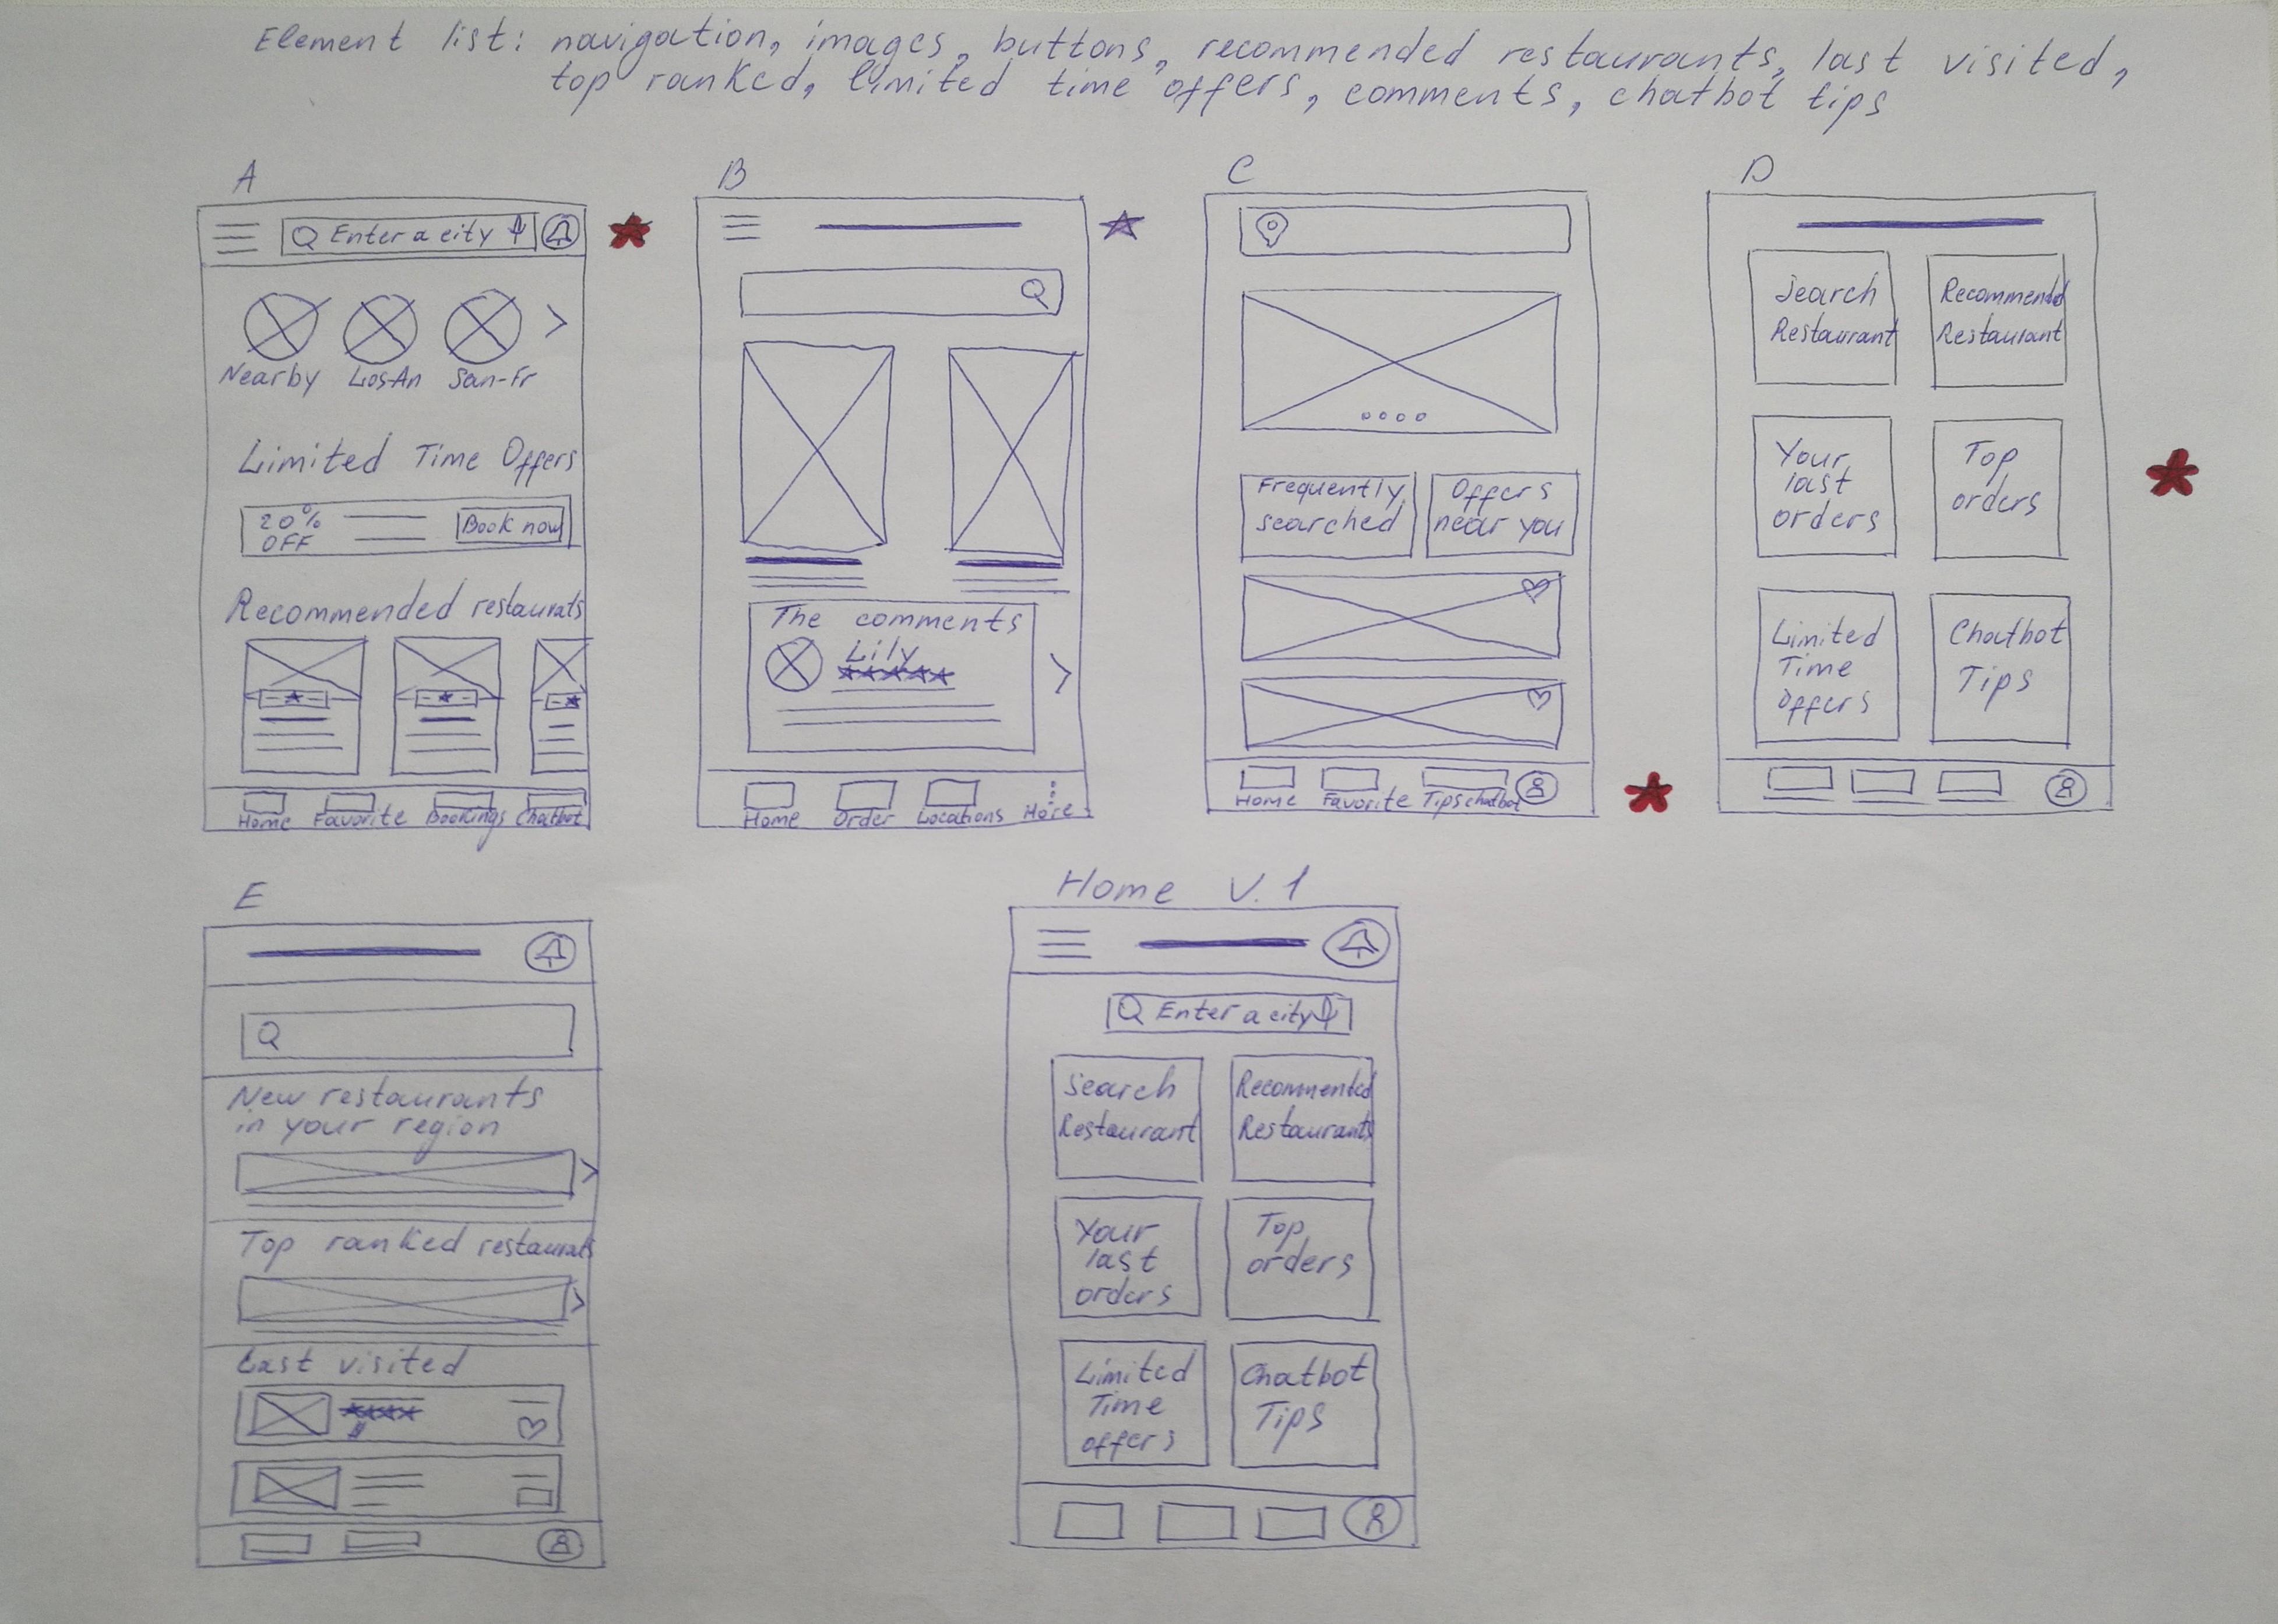 Element list: navigation, images, buttons, recommended restaurants, last visited,
top ranked, limited time offers, comments, chatbot tips
A
Enter a city
Nearby Los-An San-Fr
Limited Time Offers
20%
OFF
Book now
Recommended restaurats
Home Favorite Bookings Chatbot
B
The comments
Lily
Home Order Locations More
C
Frequently
searched
Offers
near you
Home Favorite Tips chatbot
D
Search
Restaurant
Recommended
Restaurant
Your
last
orders
Top
orders
Limited
Time
offers
Chatbot
Tips
E
New restaurants
in your region
Top ranked restaurats
Last visited
$
Home V.1
Enter a city
Search
Restaurant
Recommended
Restaurants
Your
last
orders
Top
orders
Limited
Time
offers
Chatbot
Tips